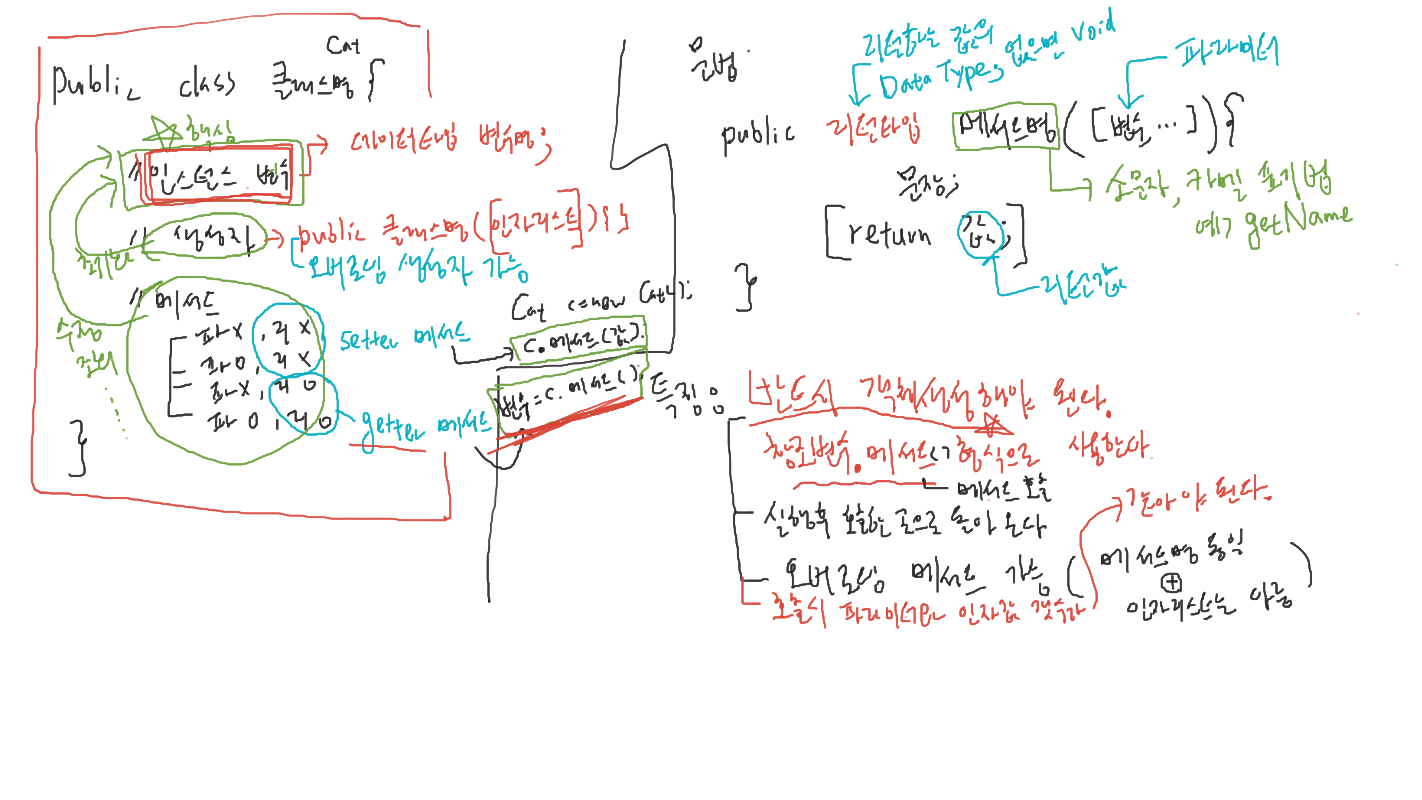 Cat
public class 클래스명 {
핵심
// 인스턴스 변수
데이터타입 변수명;
// 생성자
public 클래스명([인자리스트]){ }
오버로딩 생성자 가능
초기화
// 메서드
파x, 리x
파o, 리x
파x, 리o
파o, 리o
setter 메서드
getter 메서드
수정
관리
}
Cat c=new Cat();
c.메서드(값).
변수=c.메서드();
문법.
리턴하는 값의
Data Type, 없으면 void
파라미터
public 리턴타입 메서드명([변수,...]){
문장;
[return 값;]
}
리턴값
소문자, 카멜 표기법
예> getName
특징
반드시 객체생성 해야 된다.
참조변수.메서드() 형식으로 사용한다.
메서드 호출
실행후 호출한 곳으로 돌아 온다
오버로딩 메서드 가능
(메서드명 동일
+
인자리스트는 다름)
호출시 파라미터와 인자값 갯수가
같아야 된다.